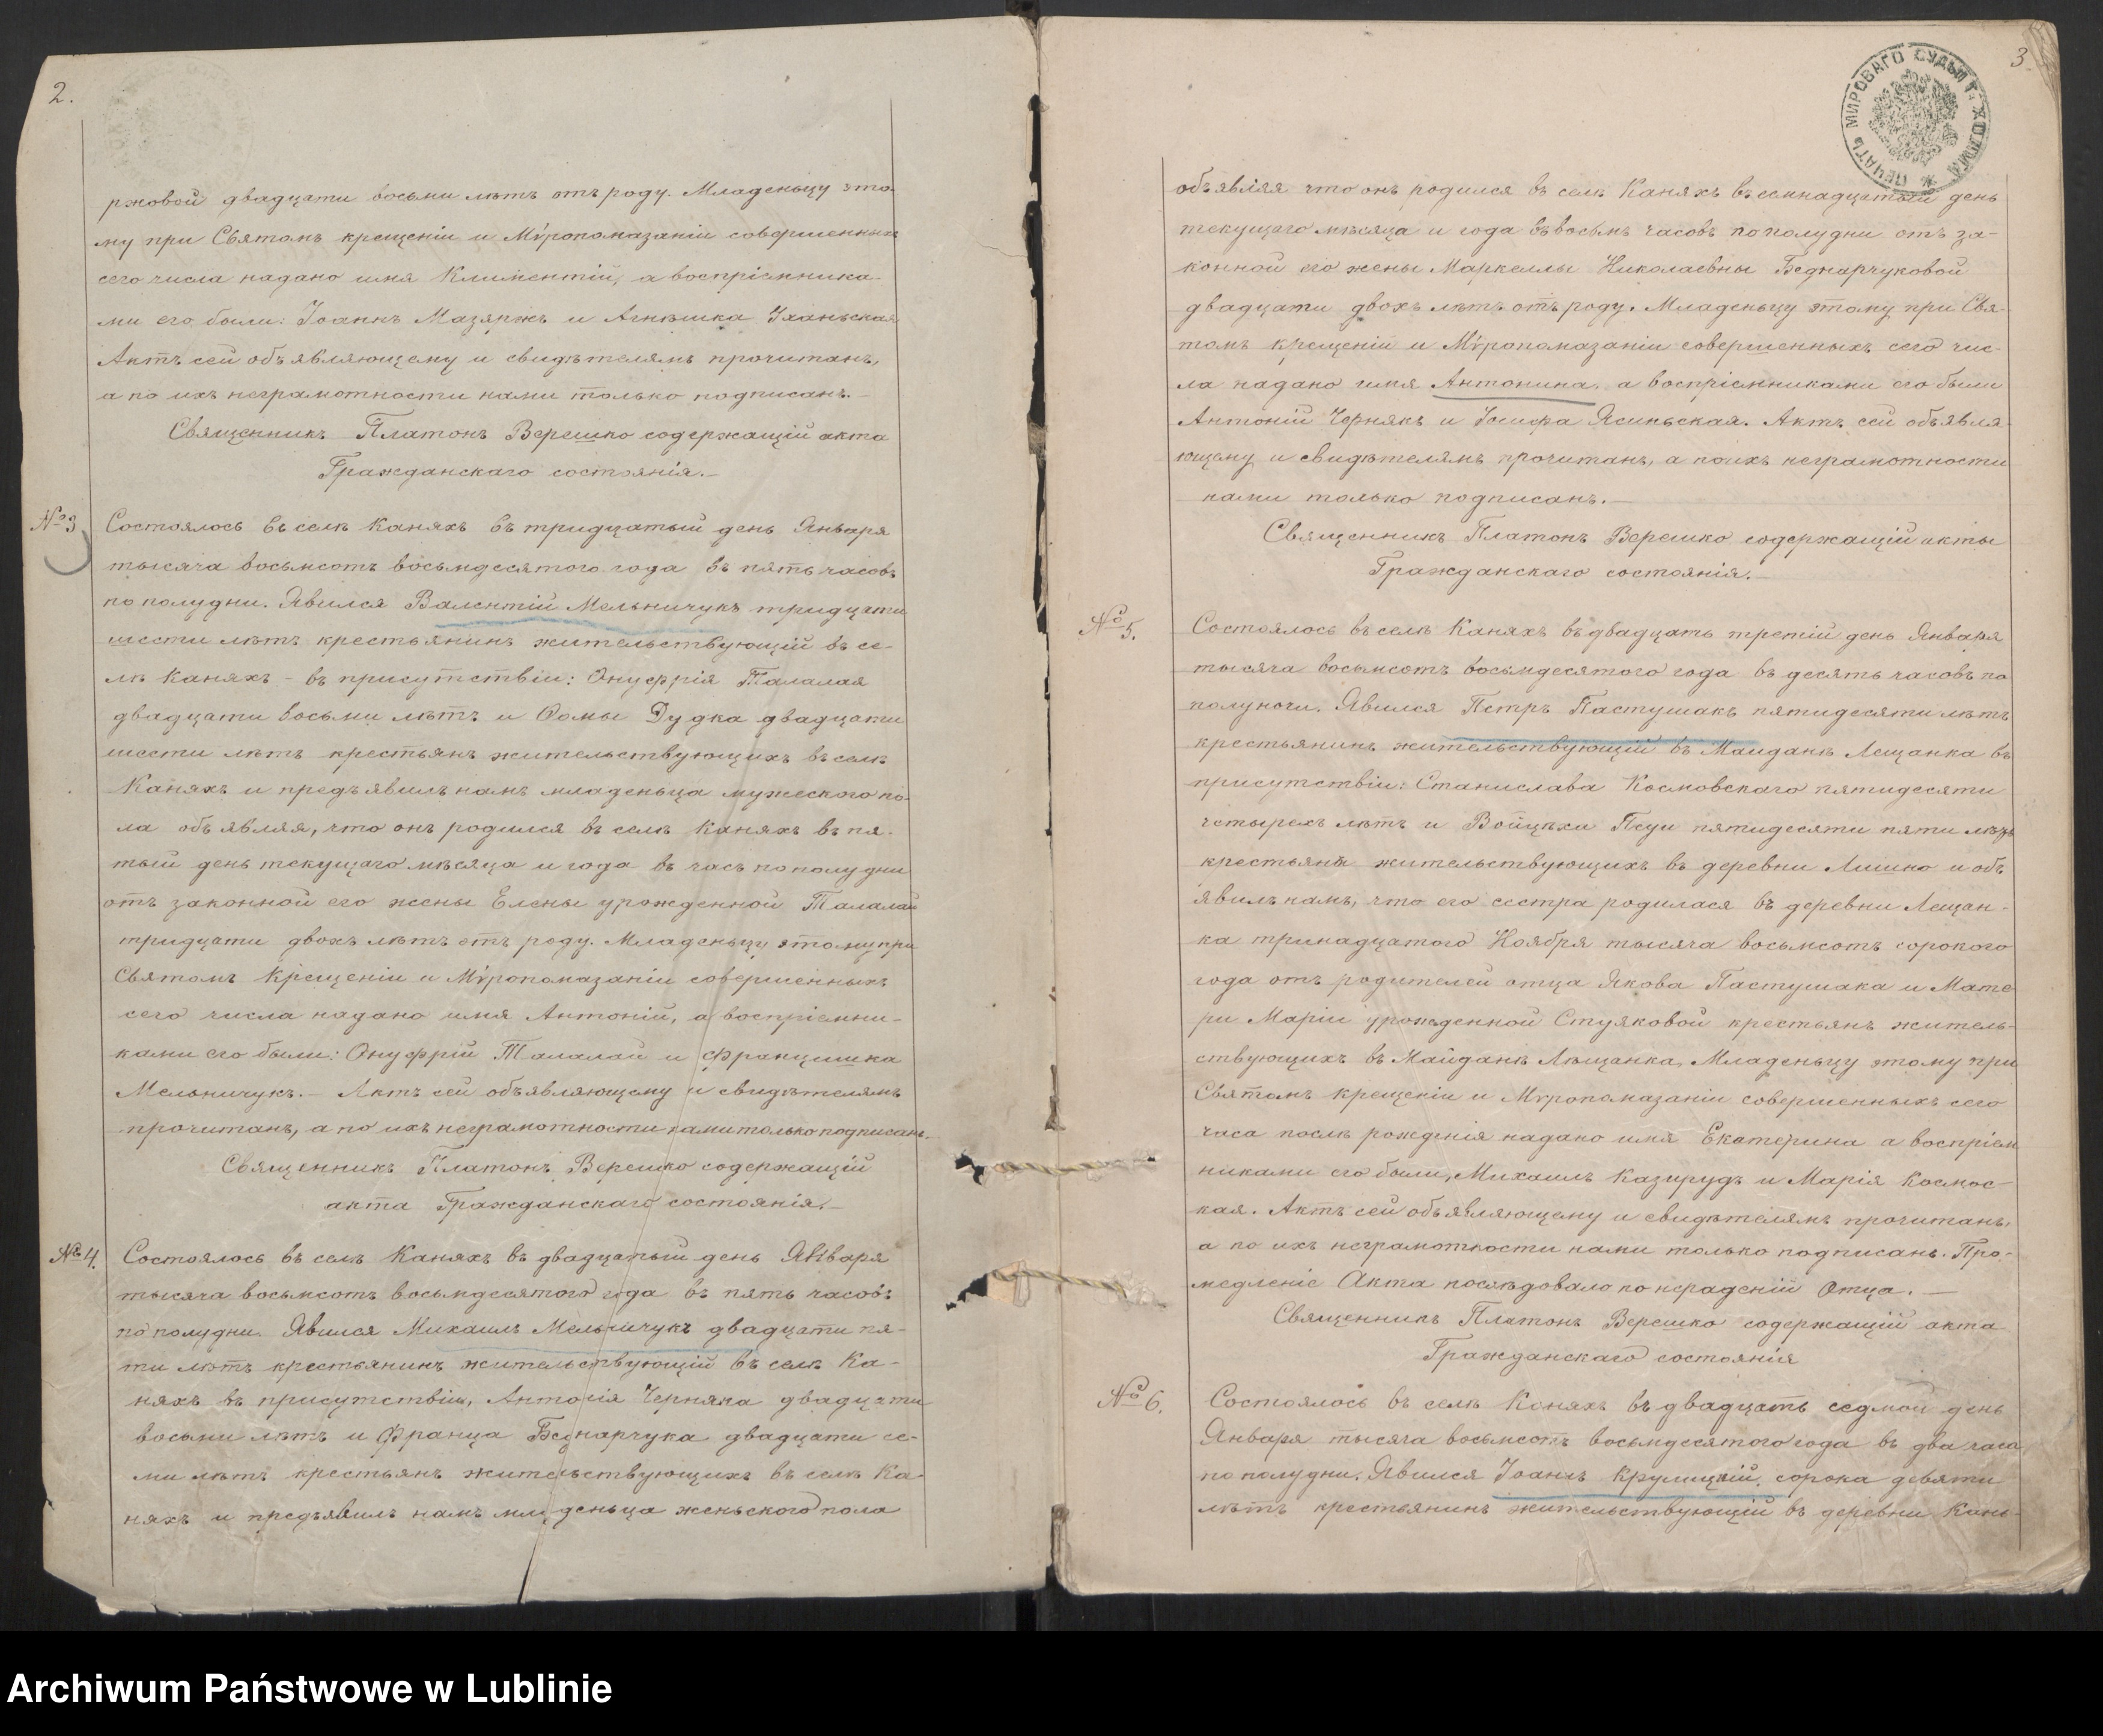 2.
ржовой двадцати восьми лѣтъ отъ роду. Младеньцу это-
му при Святомъ крещеніи и Мѵропомазаніи совершенныхъ
сего числа надано имя Климентій, а воспріемника-
ми его были: Іоаннъ Мазяржъ и Агнѣшка Уханьская
Актъ сей объявляющему и свидѣтелямъ прочитанъ,
а по ихъ неграмотности нами только подписанъ.—
Священникъ Платонъ Верешко содержащій акта
Гражданскаго состоянія.—
№ 3
Состоялось въ селѣ Каняхъ въ тридцатый день Января
тысяча восьмсотъ восьмдесятого года въ пять часовъ
по полудни. Явился Валентій Мельничукъ тридцати
шести лѣтъ крестьянинъ жительствующій въ се-
лѣ Каняхъ – въ присутствіи: Онуфрія Талалая
двадцати восьми лѣтъ и Ѳомы Дудка двадцати
шести лѣтъ крестьянъ жительствующихъ въ селѣ
Каняхъ и предъявилъ намъ младеньца мужеского по-
ла объявляя, что онъ родился въ селѣ Каняхъ въ пя-
тый день текущаго мѣсяца и года въ часъ по полудни
отъ законной его жены Елены урожденной Талалай
тридцати двохъ лѣтъ отъ роду. Младеньцу этому при
Святомъ Крещеніи и Мѵропомазаніи совершенныхъ
сего числа надано имя Антоній, а воспріемни-
ками его были: Онуфрій Талалай и Францишка
Мельничукъ.— Актъ сей объявляющему и свидѣтелямъ
прочитанъ, а по ихъ неграмотности нами только подписанъ.
Священникъ Платонъ Верешко содержащій
акта Гражданскаго состоянія.—
№ 4.
Состоялось въ селѣ Каняхъ въ двадцатый день Января
тысяча восьмсотъ восьмдесятого года въ пять часовъ
по полудни. Явился Михаилъ Мельничукъ двадцати пя-
ти лѣтъ крестьянинъ жительствующій въ селѣ Ка-
няхъ въ присутствіи, Антонія Черняка двадцати
восьми лѣтъ и Франца Беднарчука двадцати се-
ми лѣтъ крестьянъ жительствующихъ въ селѣ Ка-
няхъ и предъявилъ намъ младеньца женьского пола
3.
ПЕЧАТЬ МИРОВАГО СУДЬИ Г. ХОЛМА
объявляя что онъ родился въ селѣ Каняхъ въ семнадцатый день
текущаго мѣсяца и года въ восьмъ часовъ по полудни отъ за-
конной его жены Маркеллы Николаевны Беднарчуковой
двадцати двохъ лѣтъ отъ роду. Младеньцу этому при Свя-
томъ крещеніи и Мѵропомазаніи совершенныхъ сего чис-
ла надано имя Антонина, а воспріемниками его были
Антоній Чернякъ и Іосифа Ясиньская. Актъ сей объявля-
ющему и свидѣтелямъ прочитанъ, а по ихъ неграмотности
нами только подписанъ.—
Священникъ Платонъ Верешко содержащій акты
Гражданскаго состоянія.—
№ 5.
Состоялось въ селѣ Каняхъ въ двадцать третій день Января
тысяча восьмсотъ восьмдесятого года въ десять часовъ по
полуночи. Явился Петръ Пастушакъ пятидесяти лѣтъ
крестьянинъ жительствующій въ Майданѣ Лещанка въ
присутствіи: Станислава Космовскаго пятидесяти
четырехъ лѣтъ и Войцѣха Псуи пятидесяти пяти лѣтъ
крестьянъ жительствующихъ въ деревни Лишно и объ
явилъ намъ, что его сестра родилася въ деревни Лещан-
ка тринадцатого Ноября тысяча восьмсотъ сорокого
года отъ родителей отца Якова Пастушака и Мате
ри Маріи урожденной Стуяковой крестьянъ житель-
ствующихъ въ Майданѣ Лѣщанка, Младеньцу этому при
Святомъ крещеніи и Мѵропомазаніи совершенныхъ сего
часа послѣ рожденія надано имя Екатерина а воспріем
никами его были, Михаилъ Казирудъ и Марія Космос-
кая. Актъ сей объявляющему и свидѣтелямъ прочитанъ,
а по ихъ неграмотности нами только подписанъ. Про-
медленіе Акта послѣдовало по нераденій Отца.—
Священникъ Платонъ Верешко содержащій акта
Гражданскаго состоянія
№ 6.
Состоялось въ селѣ Каняхъ въ двадцать седмой день
Января тысяча восьмсотъ восьмдесятого года въ два часа
по полудни. Явился Іоаннъ Крулицкій сорока девяти
лѣтъ крестьянинъ жительствующій въ деревни Кань-
Archiwum Państwowe w Lublinie